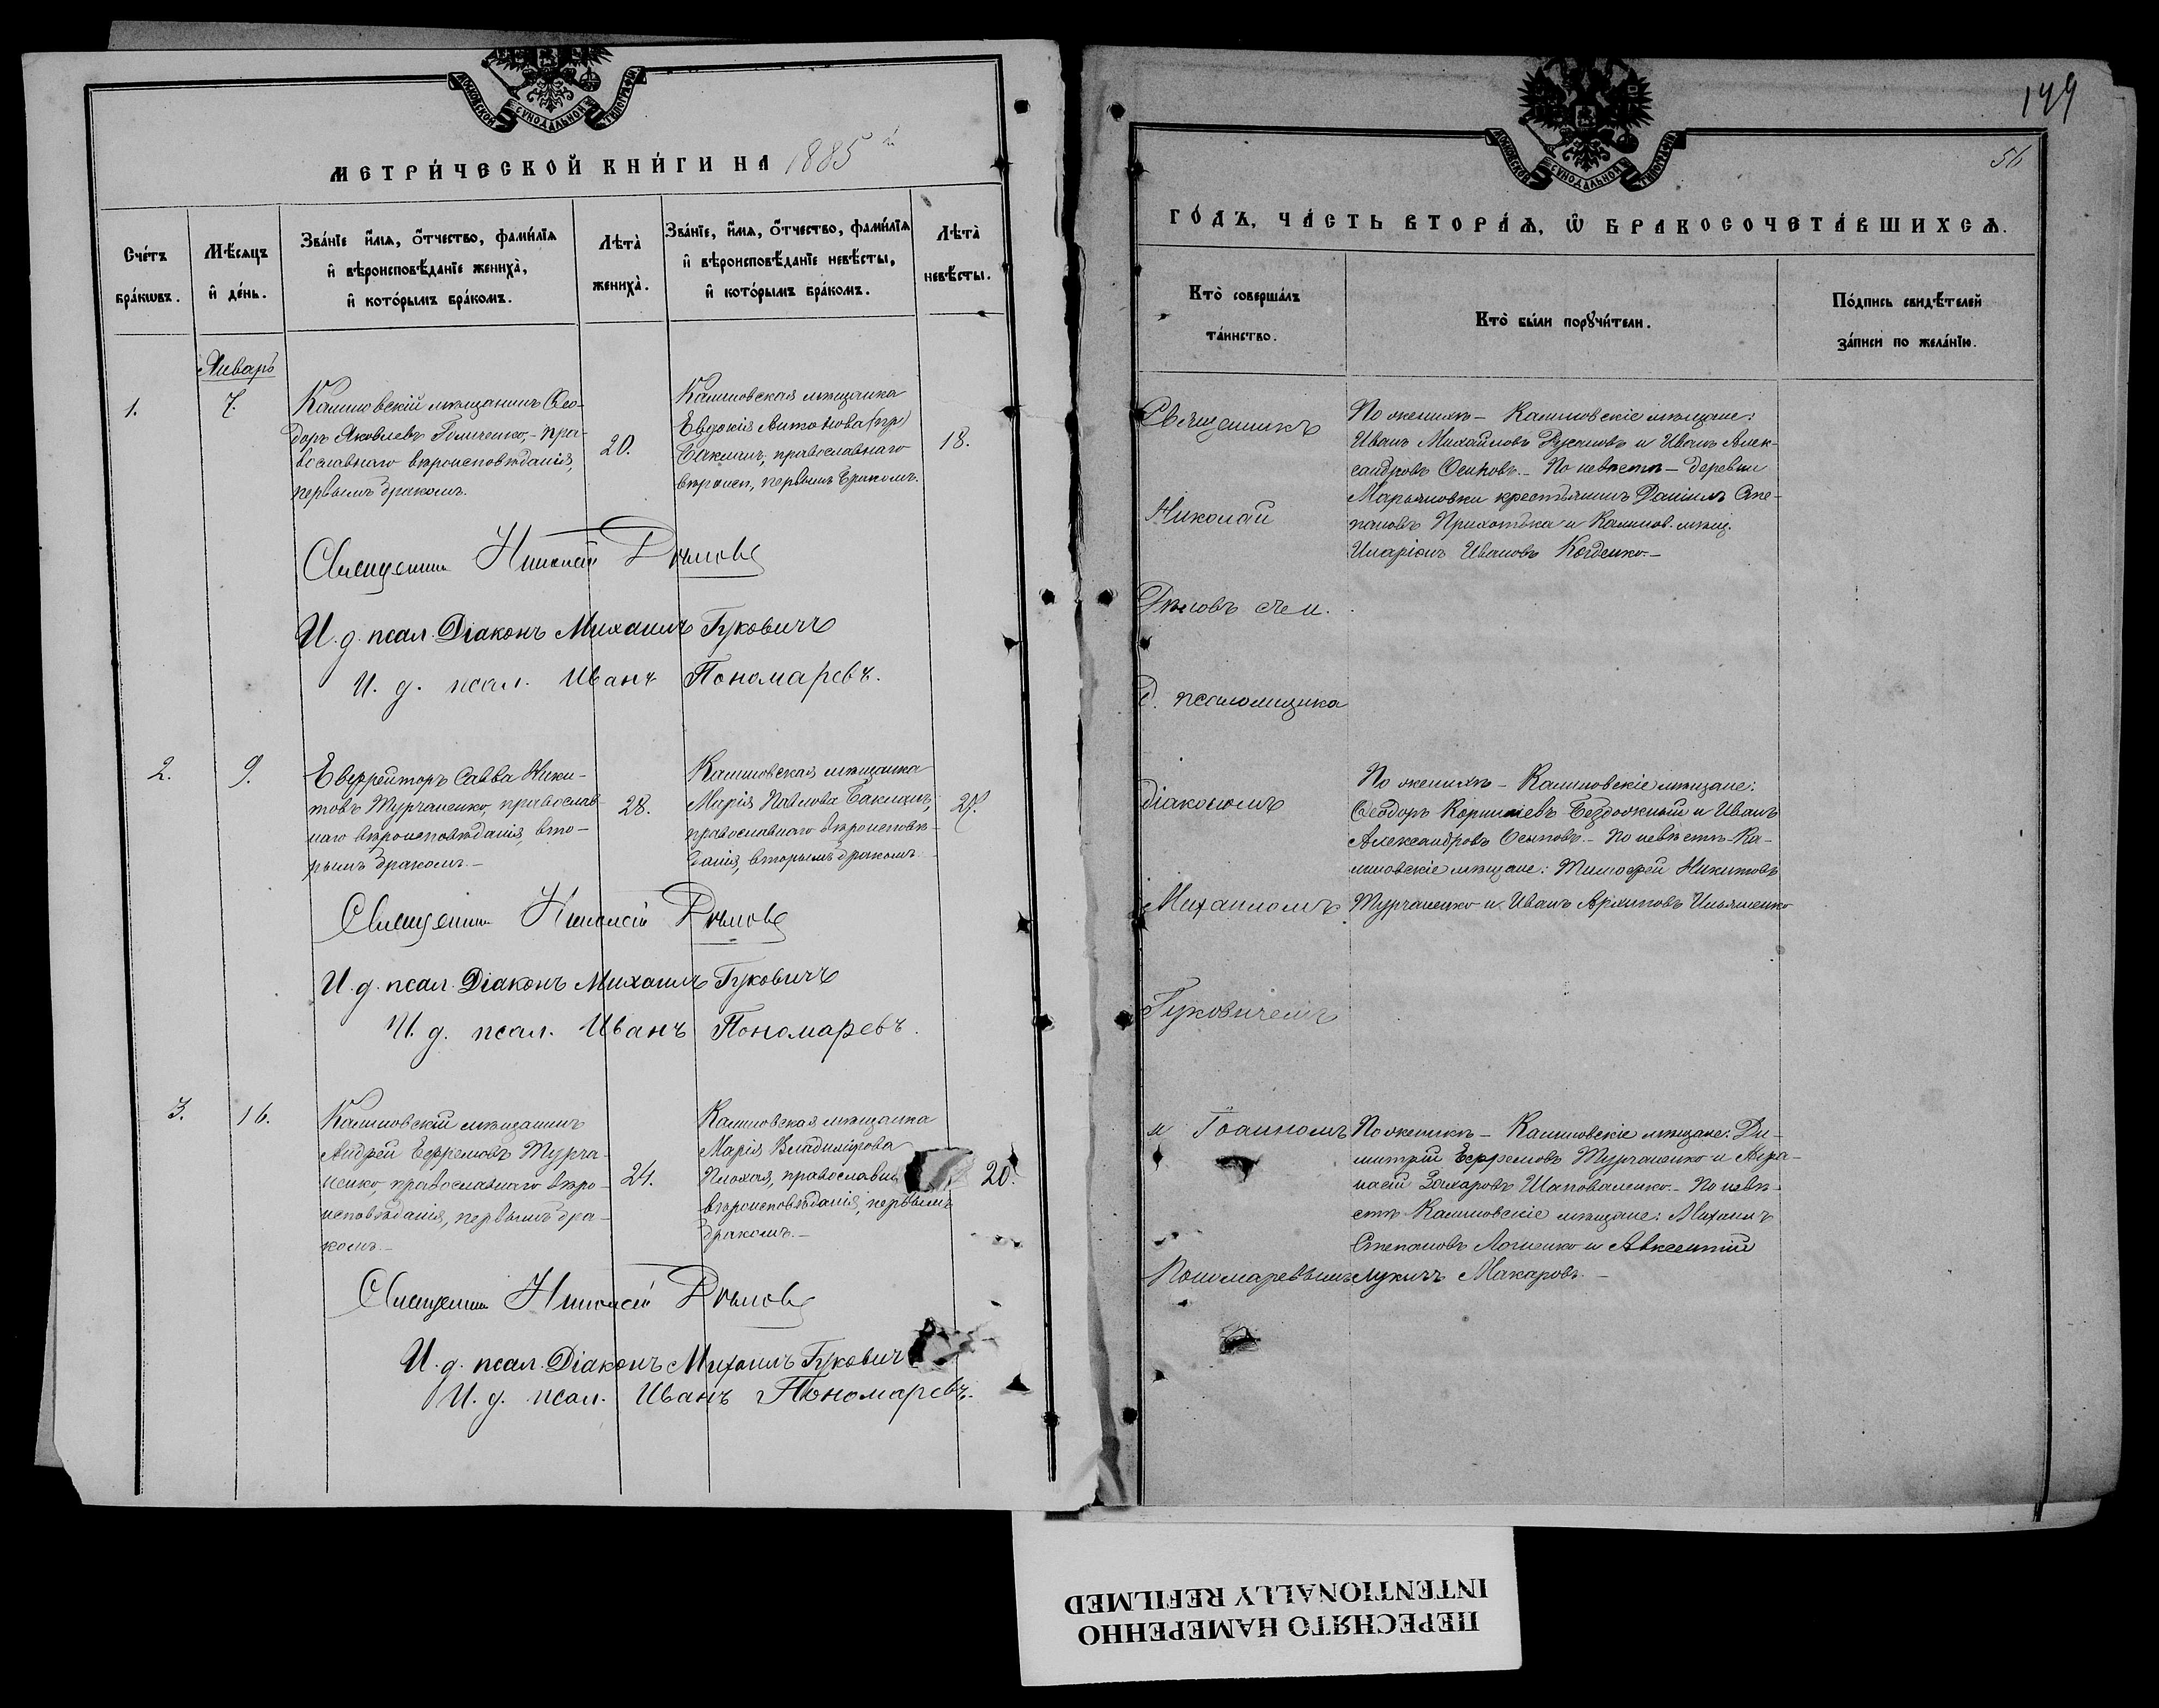 МОСКОВСКОЙ СѴНОДАЛЬНОЙ ТИПОГРАФІИ
МЕТРИ́ЧЕСКОЙ КНИ́ГИ НА 1885 й
Сче́тъ бра́кωвъ.
Мѣ́сяцъ и҆ де́нь.
Зва́нїе и҆́мѧ, ѻ҆́тчество, фами́лїѧ
и҆ вѣроисповѣ́данїе жениха̀,
и҆ кото́рымъ бра́комъ.
Лѣта̀ жениха̀.
Зва́нїе, и҆́мѧ, ѻ҆́тчество, фами́лїѧ
и҆ вѣроисповѣ́данїе невѣ́сты,
и҆ кото́рымъ бра́комъ.
Лѣта̀ невѣ́сты.
Январь
1.
7.
Калиновскій мѣщанинъ Ѳео-
доръ Яковлевъ православнаго вѣроисповѣданія,
первымъ бракомъ.
20.
Калиновская мѣщанка
Евдокія Антонова (пр)
Бакланъ, православнаго
вѣроисп., первымъ бракомъ.
18.
Священник Николай
И. д. псал. Діаконъ Михаилъ Гуковичъ
И. д. псал. Иванъ Пономаревъ.
2.
9.
Ефрейторъ Савва Ники-
товъ Турчаненко, православ-
наго вѣроисповѣданія, вто-
рымъ бракомъ.-
28.
Калиновская мѣщанка
Марія Павлова Бакланъ,
православнаго вѣроисповѣ-
данія, вторымъ бракомъ.
Священник Николай
И. д. псал. Діаконъ Михаилъ Гуковичъ
И. д. псал. Иванъ Пономаревъ.
3.
16.
Калиновскій мѣщанинъ
Андрей Ефремовъ Турча-
ненко, православнаго вѣро-
исповѣданія, первымъ бра-
комъ.-
24.
Калиновская мѣщанка
Марія Владимірова
Плохая, православн
вѣроисповѣданія, первымъ
бракомъ.-
20.
Священник Николай
И. д. псал. Діаконъ Михаилъ Гукович
И. д. псал. Иванъ Пономаревъ.
149
56
МОСКОВСКОЙ СѴНОДАЛЬНОЙ ТИПОГРАФІИ
ГО́ДЪ, ЧА́СТЬ ВТОРА́Ѧ, Ѽ БРАКОСОЧЕТА́ВШИХСѦ.
Кто̀ соверша́лъ
та́инство.
Кто̀ бы́ли порꙋчи́тели.
По́дпись свидѣ́телей
за́писи по жела́нїю.
Священникъ
Николай
и.
д. псаломщика
діакономъ
Михаиломъ
Гуковичемъ
и Іоанномъ
Пономаревымъ
По женихѣ - Калиновскіе мѣщане:
Иванъ Михайловъ Русановъ и Иванъ Алек-
сандровъ Осиповъ. - По невѣстѣ - деревни
Марьяновки крестьянинъ Даніилъ Сте-
пановъ Прихотька и Калинов. мѣщ.
Иларіонъ Ивановъ Когденко.-
По женихѣ - Калиновскіе мѣщане:
Ѳеодоръ Корниліевъ Бездожный и Иванъ
Александровъ Осиповъ. - По невѣстѣ - Ка-
линовскіе мѣщане: Тимофей Никитовъ
Турчаненко и Иванъ Архиповъ Ильяшенко
По женихѣ - Калиновскіе мѣщане: Ди-
митрій Ефремовъ Турчаненко и Аѳа-
насій Захаровъ Шаповаленко. - По невѣ-
стѣ Калиновскіе мѣщане: Михаилъ
Степановъ и Авксентій
Лукичъ Макаровъ. -
ПЕРЕСНЯТО НАМЕРЕННО
INTENTIONALLY REFILMED